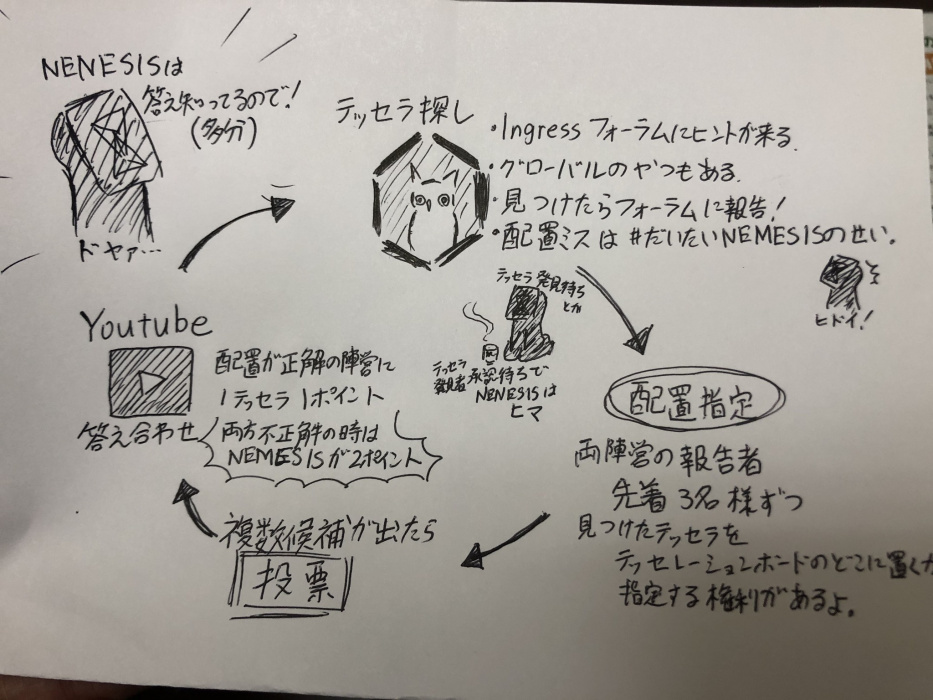 NENESISは
答え知ってるので!
(多分)
ドヤァ…
テッセラ探し
・Ingress フォーラムにヒントが来る.
・グローバルのやつもある.
・見つけたらフォーラムに報告!
・配置ミスは #だいたいNEMESISのせい。
ヒドイ!
テッセラ発見待ち
とか
テッセラ
発見者承認待ちで
NENESISは
ヒマ
配置指定
両陣営の報告者
先着3名様ずつ
見つけたテッセラを
テッセレーションボードのどこに置くか
指定する権利があるよ。
複数候補が出たら
投票
Youtube
答え合わせ
配置が正解の陣営に
1テッセラ1ポイント
両方不正解の時は
NEMESISが2ポイント